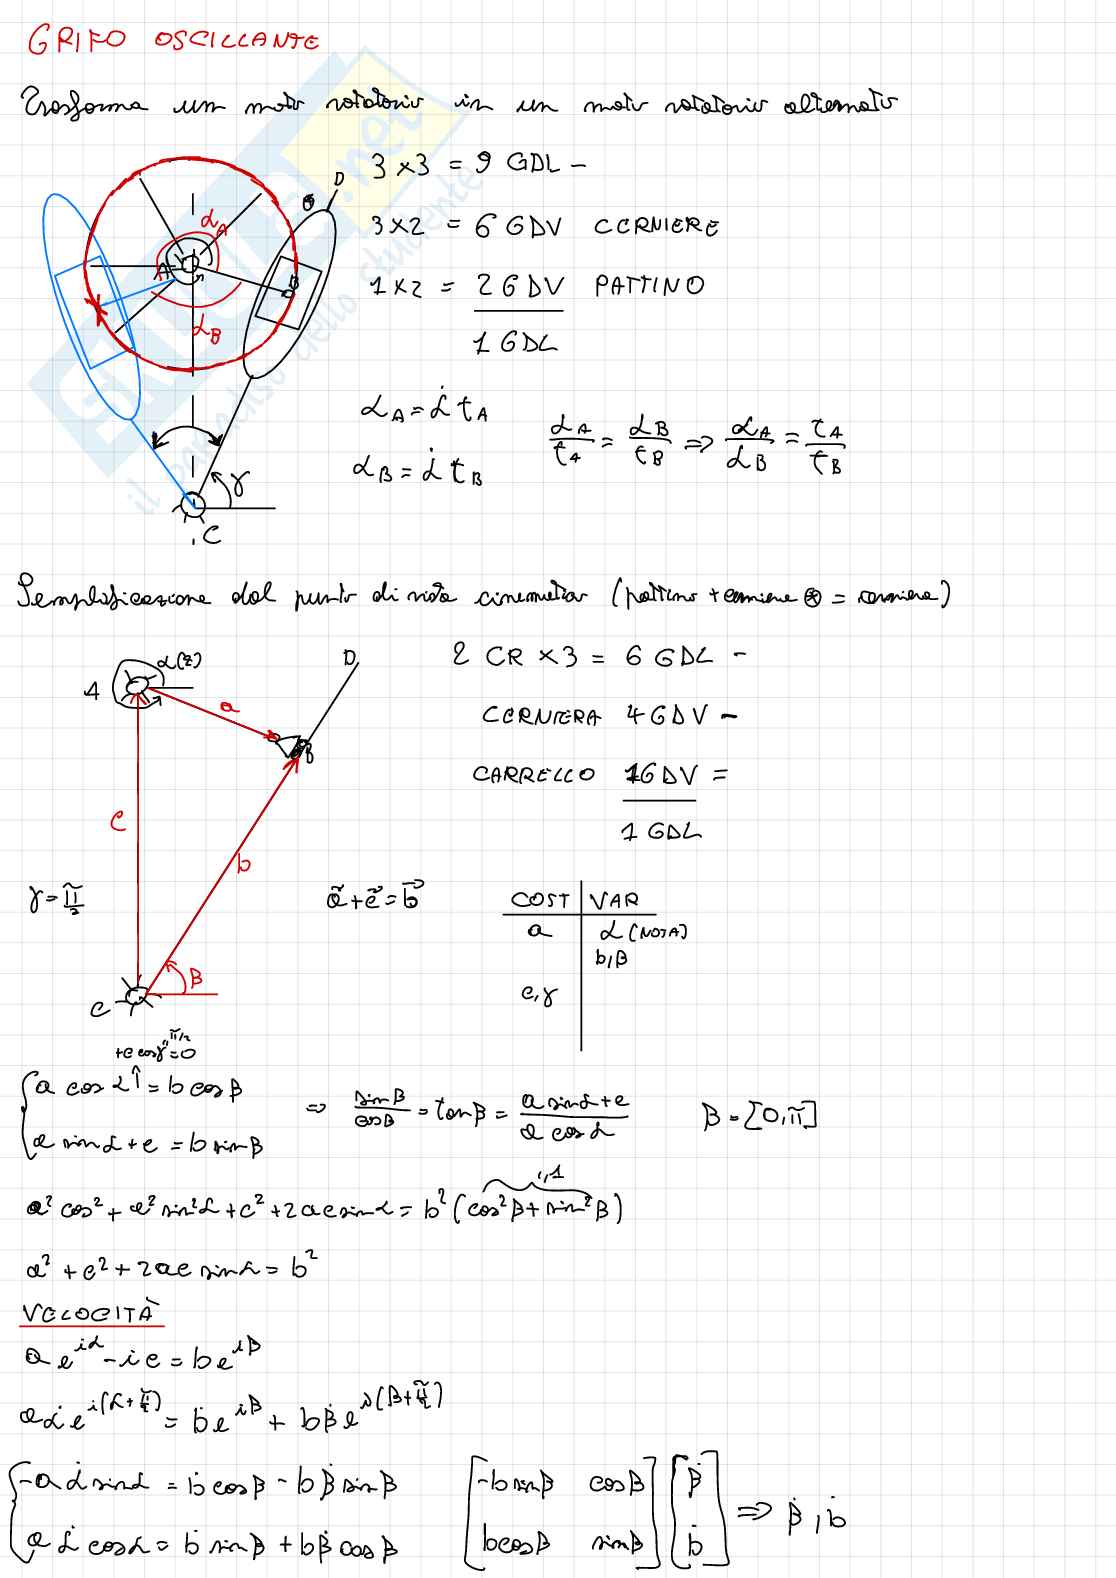 GRIFO OSCILLANTE
Trasforma un moto rotatorio in un moto rotatorio alternato
3 x 3 = 9 GDL -
3 x 2 = 6 GDV CERNIERE
1 x 2 = 2 GDV PATTINO
1 GDL
D
B
A
α_A
α_B
γ
C
α_A = α̇ t_A
α_B = α̇ t_B
α_A/t_A = α_B/t_B => α_A/α_B = t_A/t_B
Semplificazione dal punto di vista cinematico (pattino + cerniera ⊛ = cerniera)
2 CR x 3 = 6 GDL -
CERNIERA 4 GDV -
CARRELLO 1 GDV =
1 GDL
A
α(t)
D
a
B
c
b
β
C
γ = π/2
a⃗ + c⃗ = b⃗
COST | VAR
a | α (NOTA)
b, β
c, γ
+c cos γ = 0
π/2
{ a cos α ↑ = b cos β
a sin α + c = b sin β
=> sin β/cos β = tan β = (a sin α + c)/(a cos α)
β = [0, π]
a² cos² + a² sin² α + c² + 2ac sin α = b² (cos² β + sin² β)
1
a² + c² + 2ac sin α = b²
VELOCITÀ
a e^{iα} - ic = b e^{iβ}
a α̇ e^{i(α+π/2)} = ḃ e^{iβ} + b β̇ e^{i(β+π/2)}
{ -a α̇ sin α = ḃ cos β - b β̇ sin β
a α̇ cos α = ḃ sin β + b β̇ cos β
[ -b sin β cos β ] [ β̇ ]
[ b cos β sin β ] [ ḃ ] => β̇, ḃ
SKUOLA.net
il paradiso dello studente